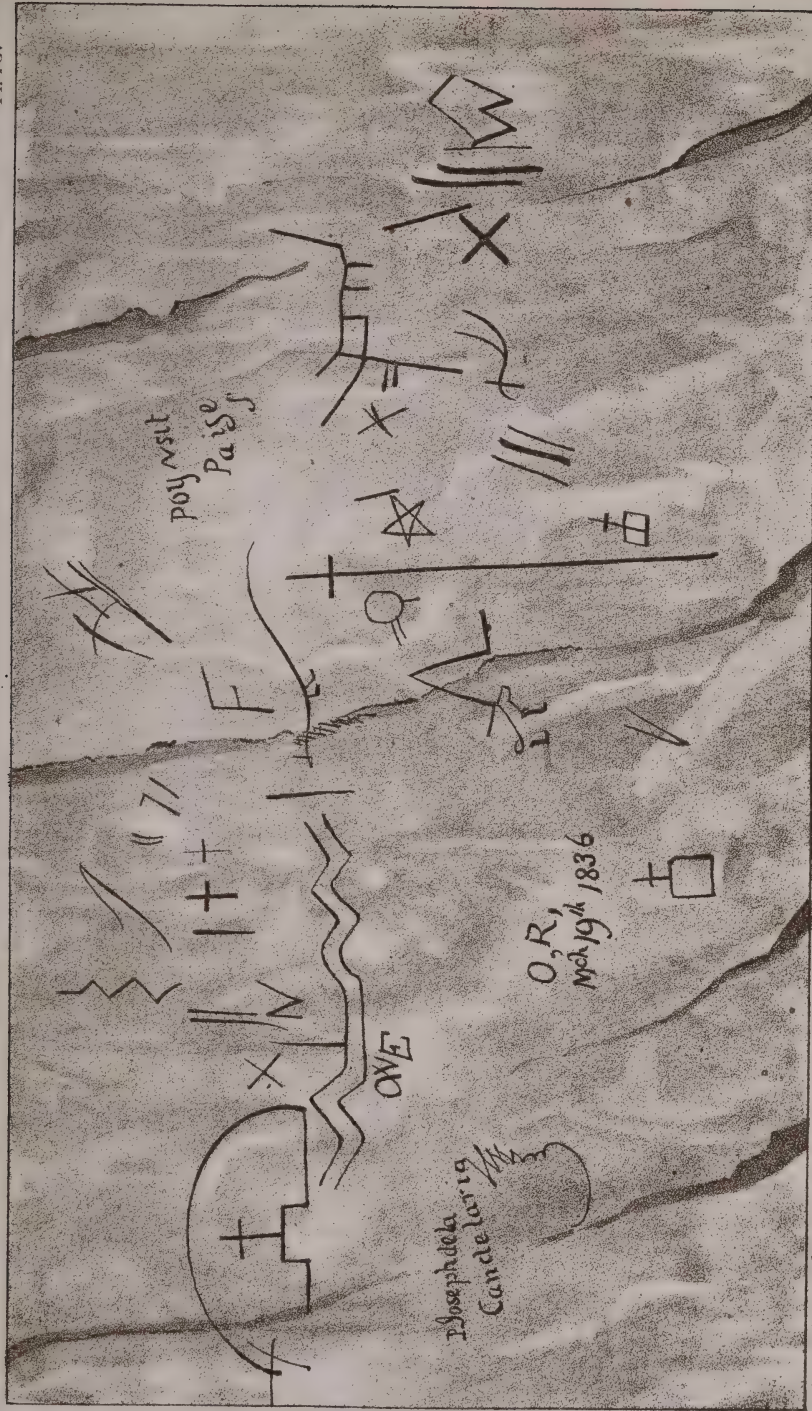 Poynsit
Paise
OWE
O,R,
Mch 19th 1836
P Joseph dela
Candelaria